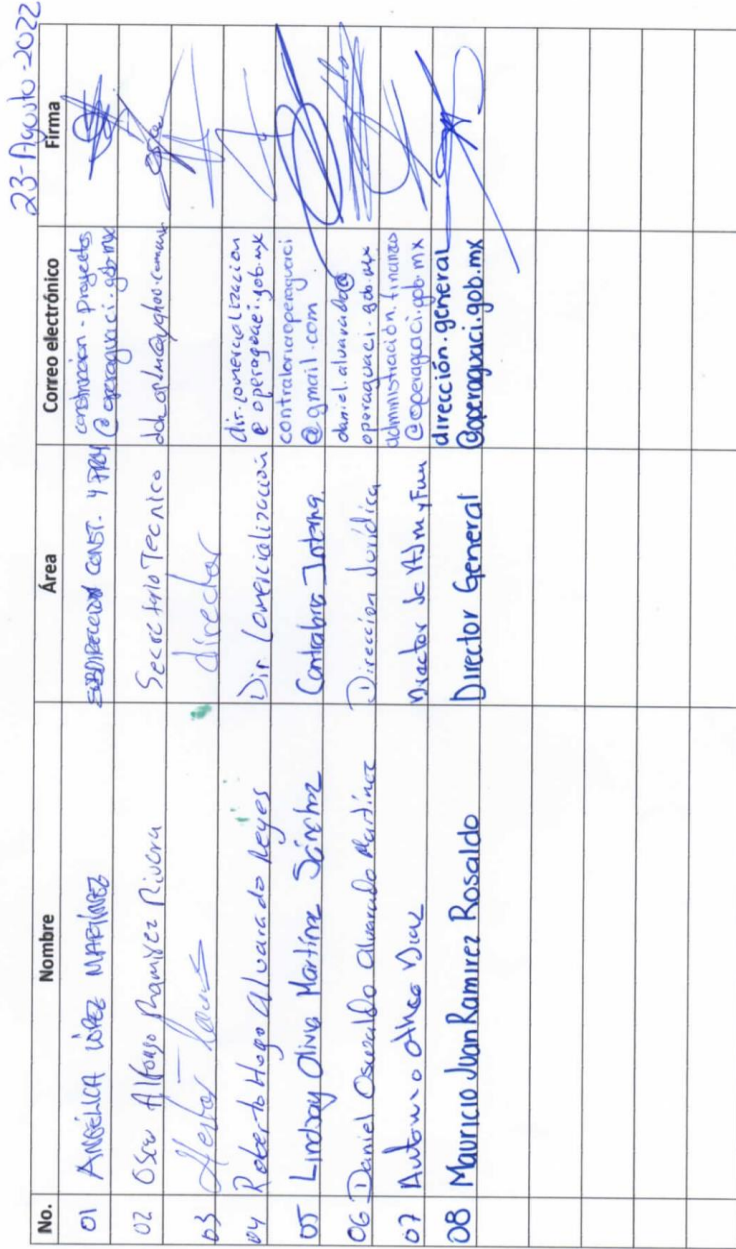 23-Agosto-2022
No. Nombre Área Correo electrónico Firma
01 ANGÉLICA LÓPEZ MARTÍNEZ SUBDIRECCION CONST. Y PROY construccion-proyectos
@operaguaci.gob.mx
02 Oscar Alfonso Ramírez Rivera Secretario Tecnico
03 Director
04 Roberto Hugo Alvarado Reyes Dir Comercialización dir.comercializacion
@operaguaci.gob.mx
05 Lindsay Olivia Martínez Sánchez Contralora Interna contraloriaoperaguaci
@gmail.com
06 Daniel Oswaldo Alvarado Martínez Dirección Jurídica daniel.alvarado@
operaguaci.gob.mx
07 Antonio Director de Adm y Fin administración.finanzas
@operaguaci.gob.mx
08 Mauricio Juan Ramirez Rosaldo Director General dirección.general
@operaguaci.gob.mx